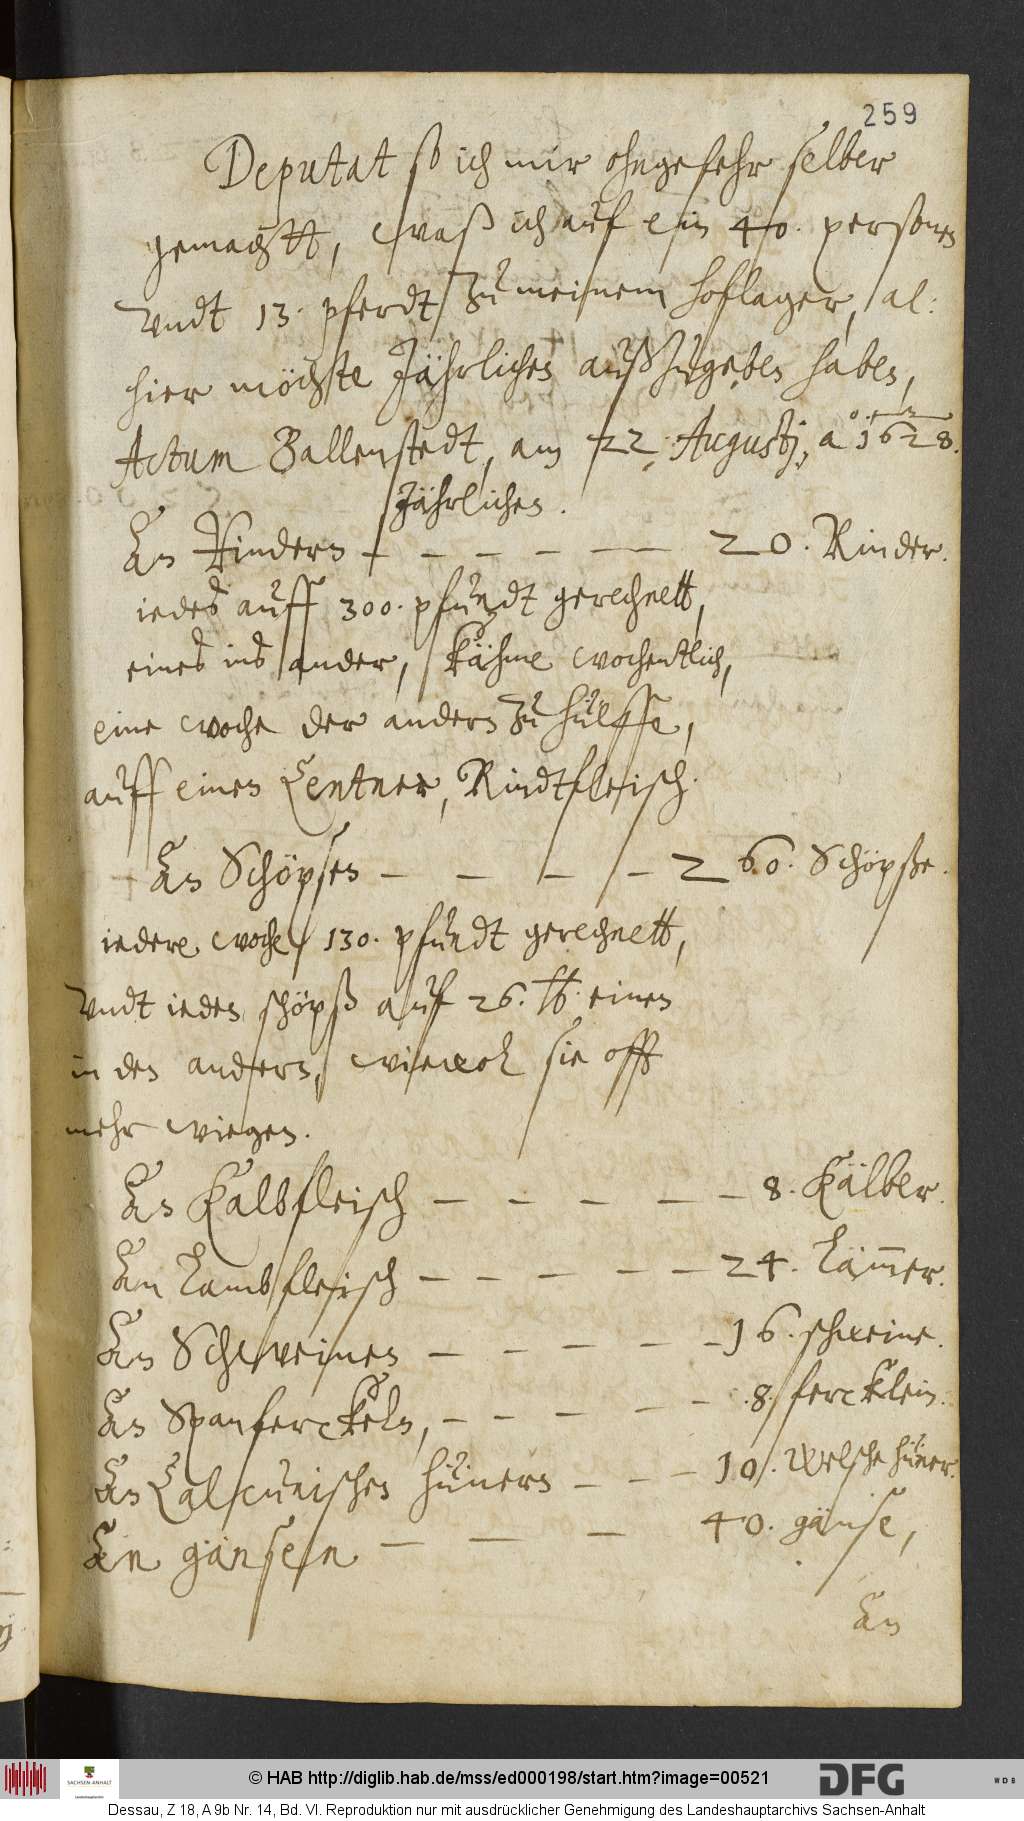 259
Deputat so ich mir ohngefehr selber
gemachtt, waß ich auf ein 40. personen
Vndt 13. pferdt zu meinem hoflager, al:
hier möchte Jährlichen außzugeben haben,
Actum Ballenstedt, am 22. Augustj, ao. 1628.
Jährlichen.
An Rindern – – – – — 20. Rinder.
iedes auff 300. pfundt gerechnett,
eines ins ander, kähme wochentlich,
eine woche der andern zu hülffe,
auff einen Centner, Rindtfleisch.
An Schöpsen – – – – 260. Schöpße.
iedere woche 130. pfundt gerechnett,
Vndt ieden schöpß auf 26. lb. einen
in den andern, wiewol sie offt
mehr wiegen.
An Kalbfleisch – – – – – 8. Kälber.
An Lambfleisch – – – – – 24. Lämmer.
An Schweinen – – – – – 16. schweine.
An Spanferckeln, – – – – – 8. ferckelein.
An Calcunischen hünern – – – 10. welsche hüner.
An gänsen – — – 40. gänse,
An
© HAB http://diglib.hab.de/mss/ed000198/start.htm?image=00521
SACHSEN-ANHALT
DFG
WDB
Dessau, Z 18, A 9b Nr. 14, Bd. VI. Reproduktion nur mit ausdrücklicher Genehmigung des Landeshauptarchivs Sachsen-Anhalt